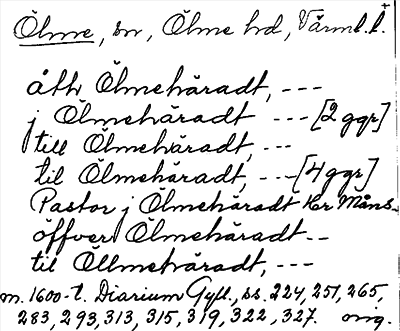 Ölme, sn, Ölme hd, Värml. l.
åth Ölmehäradt, ---
j Ölmehäradt --- [2 ggr]
till Ölmehäradt, ---
til Ölmehäradt, --- [4 ggr]
Pastor j Ölmehäradt Her Måns
öffver Ölmehäradt --
til Öllmehäradt, ---
m. 1600-t. Diarium Gyll., ss. 224, 251, 265,
283, 293, 313, 315, 319, 322, 327. orig.